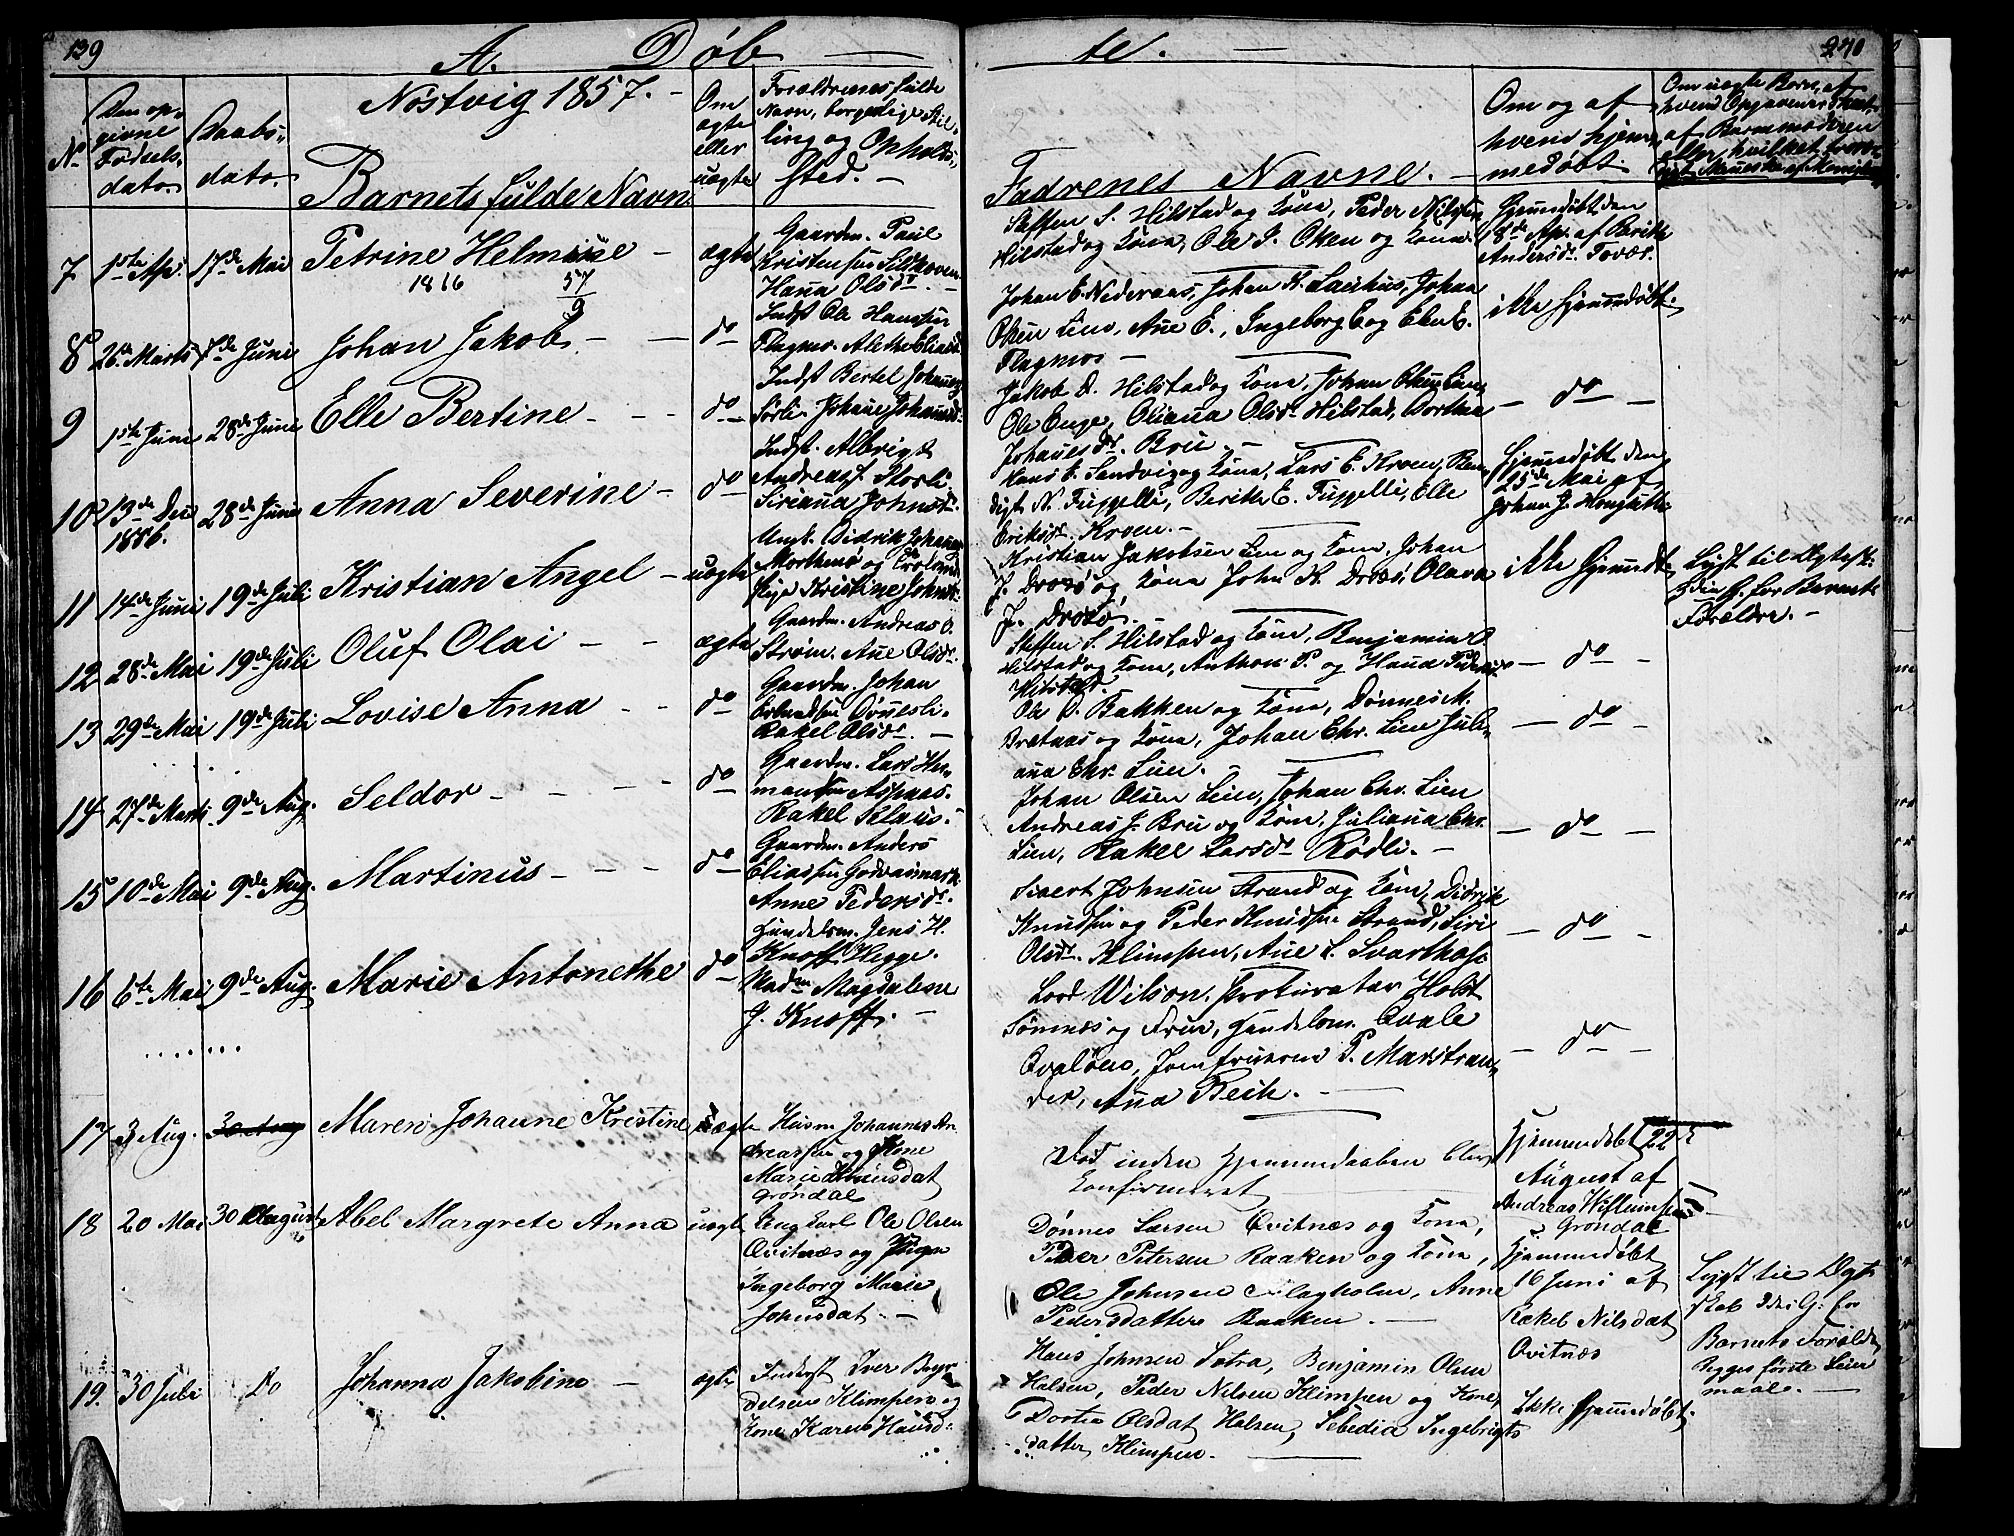 139
A. Døb
te.
240
Nostvig 1857.
No
Den op-
givne
Fødsels-
dato
Daabs-
dato.
Barnets fulde Navn
Om
ægte
eller
uægte
Forældrenes fulde
Navn, borgerlige Stil-
ling og Opholds-
sted.
Fadrenes Navne.
Om og af
hvem hjem-
medøbt
Om uægte Børn, af
7 1ste Ap. 17de Mai Petrine Helmine ægte
1816 57/9
Gaardm. Paul
Kristensen
Hana Olsdr.
Steffen S. Hilstad og Kone, Peder Nilsen
Hilstad og Kone, Ole P. Oken og Kone.
Hjemmedøbt den
8de Ap. af Berith
Andersdr. Tovær.
8 26de Marts 7de Juni Johan Jakob do
Indst Ole Hansen
Flagmo.
Johan E. Nederaas, Johan H. Laukus, Johan
Olsen Lien, Ane E., Ingeborg E og Elen E.
Flagmos
ikke Hjemmedøbt.
9 1ste Juni 28de Juni Elle Bertine do
Indst Bertel Johannes
Sørli. Johane Johannesd.
Jakob D. Hilstad og Kone, Johan Olsen Lien,
Ole Enge, Oliana Olsdr. Hilstad, Dorthea
Johanesdr. Brü.
do
10 13de Dec 1856. 28de Juni Anna Severine do
Indst. Albrigt
Andreass. Storli.
Siriana Johnsdr.
Hans E. Sandvig og Kone, Lars E. Kroen, Ben-
digt N. Fuggelli, Berith E. Fuggelli, Elle
Eriksdr. Kroen.
Hjemmedøbt den
25de Mai af
11 14de Juni 19de Juli Kristian Angel uægte
Ungk. Didrik Johannes
Mortensø og
Pige Kristine Johnsd.
Kristian Jakobsen Lien og Kone. Johan
J. Drosø og Kone John H. Drosø, Olava
J. Drosø.
ikke Hjemmedt.
Lyst til Ægtesk.
3die G. for Barnets
Forældre.
12 28de Mai 19de Juli Oluf Olai ægte
Gaardm. Andreas O.
Strøm. Ane Olsdr.
Steffen S. Hilstad og Kone, Benjamin O
Hilstad og Kone, Anthon P. og Hana Pedersdr
Hilstad.
do
13 29de Mai 19de Juli Lovise Anna do
Gaardm. Johan
Erlandsen Dønnesli.
Rakel Olsdr.
Ole O. Bakken og Kone, Dønnes M.
Bratnæs og Kone, Johan Chr. Lien Juli-
ana Chr. Lien.
do
14 27de Marts 9de Aug. Seldor do
Gaardm. Lars Her-
mansen Aspaas.
Rakel Klaus.
Johan Olsen Lien, Johan Chr. Lien
Andreas J. Brü og Kone, Juliana Chr.
Lien, Rakel Larsdr Rødli.
do
15 10de Mai 9de Aug. Martinus do
Gaardm. Anders
Eliassen
Anne Pedersdr.
Sivert Johnsen Strand og Kone, Didrik
Knudsen og Peder Knudsen Strand, Siri
Olsdr. Klimpen, Ane L. Svarthols
do
16 6te Mai 9de Aug. Marie Antonethe do
Handelsm. Jens H.
Knoff Hegge.
Madm Magdalene
J. Knoff.
Lord Wilson, Prokurator Holst
Sømnæs og Frue, Handelsm. Qvale
Qvaløen, Jomfruerne P. Marstran-
der, Ana Beck.
do
17 3 Aug. 30 Aug Maren Johanne Kristine ægte
Husm Johannes An
dreassen og Kone
Marie Knudsdat
Grøndal
Død inden Hjemmedaaben blev
Konfirmeret
Hjemmedøbt 22
August af
Andreas Wilhumsen
Grøndal
18 20 Mai 30 August Abel Margrete Anna uægte
Ung karl Ole Olsen
Qvitnæs og Pigen
Ingeborg Marie
Johnsdat.
Dønnes Larsen Qvitnæs og Kone,
Peder Petersen Raaken og Kone,
Ole Johnsen Flagholm, Anne
Pedersdatter Raaken.
Hjemmedøbt
16 Juni af
Rakel Nilsdat
Qvitnæs
Lyst til Ægte
skab 3die G. for
Barnets Forældre
begges første Leier
maal.
19. 30 Juli Do Johanna Jakobine ægte
Inderst Iver Beyr
delsen Klimpen og
Kone Karen Hansd:
Hans Johnsen Sotra, Benjamin Olsen
Halsen, Peder Nilsen Klimpen og Kone,
Dortea Olsdat Halsen, Sebedia Ingebrigts
datter Klimpen.
Ikke Hjemmedøbt.